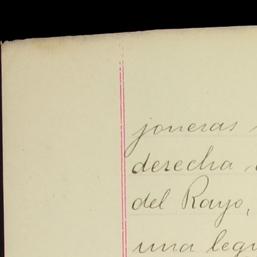 joneras
derecha
del Rayo,
una legu